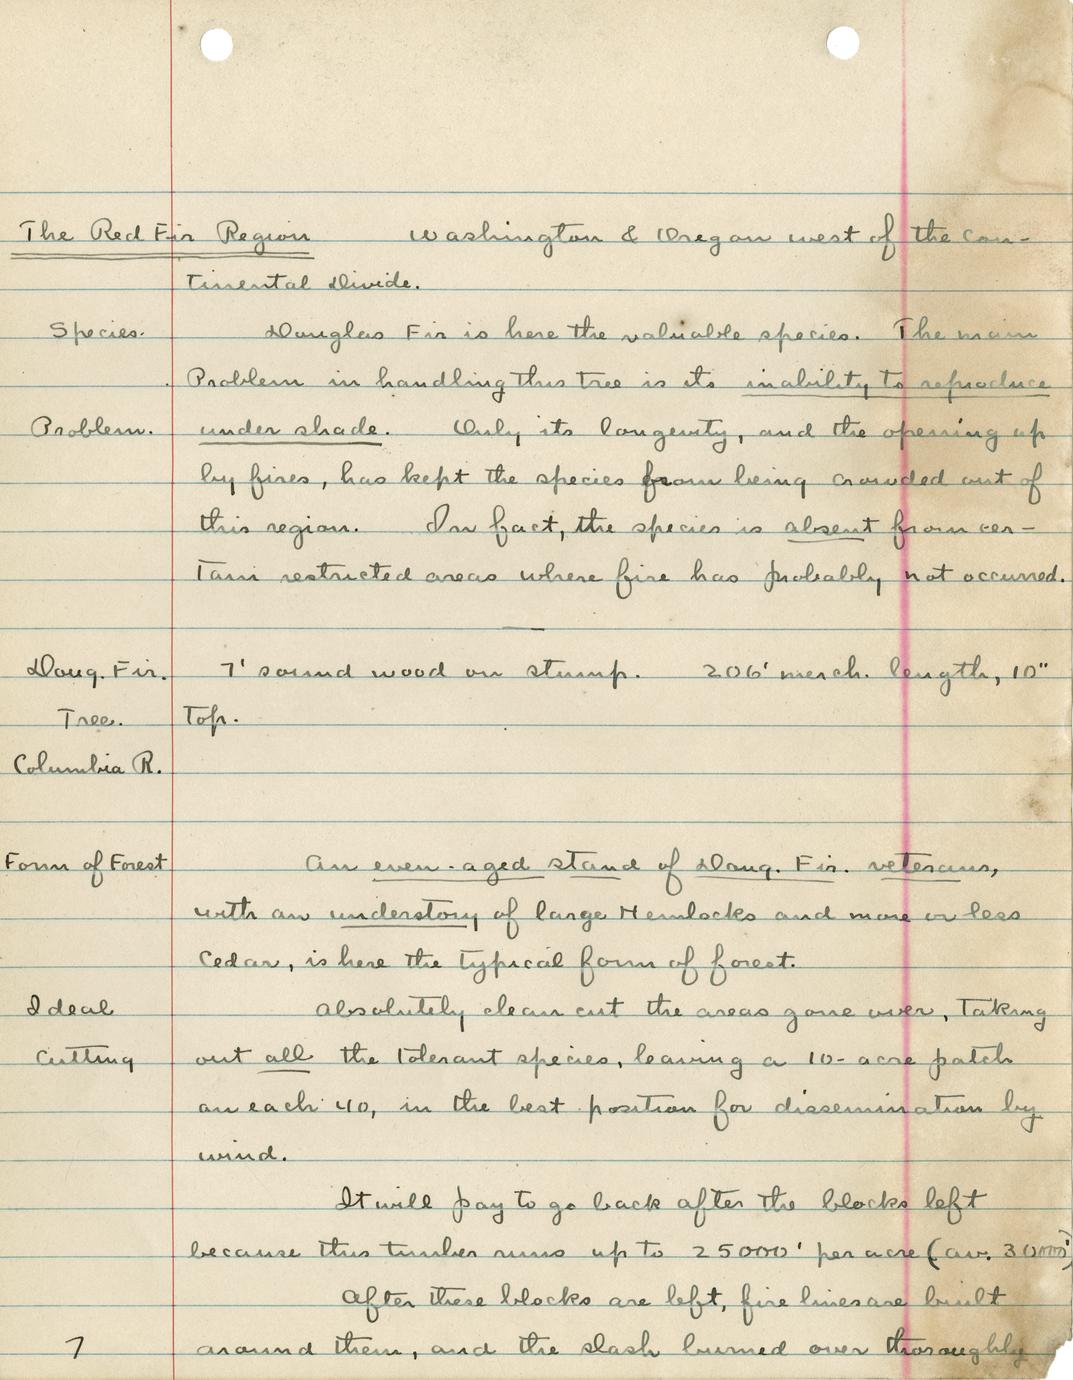 The Red Fir Region Washington & Oregon west of the Con-
tinental Divide.
Species. Douglas Fir is here the valuable species. The main
Problem in handling this tree is its inability to reproduce
Problem. under shade. Only its longevity, and the opening up
by fires, has kept the species from being crowded out of
this region. In fact, the species is absent from cer-
tain restricted areas where fire has probably not occurred.
Doug. Fir. 7' sound wood on stump. 206' merch. length, 10"
Tree. Top.
Columbia R.
Form of Forest An even-aged stand of Doug. Fir. veterans,
with an understory of large Hemlocks and more or less
Cedar, is here the typical form of forest.
Ideal Absolutely clean cut the areas gone over, taking
Cutting out all the tolerant species, leaving a 10-acre patch
on each 40, in the best position for dissemination by
wind.
It will pay to go back after the blocks left
because this timber runs up to 25000' per acre (av. 30000')
After these blocks are left, fire lines are built
7 around them, and the slash burned over thoroughly